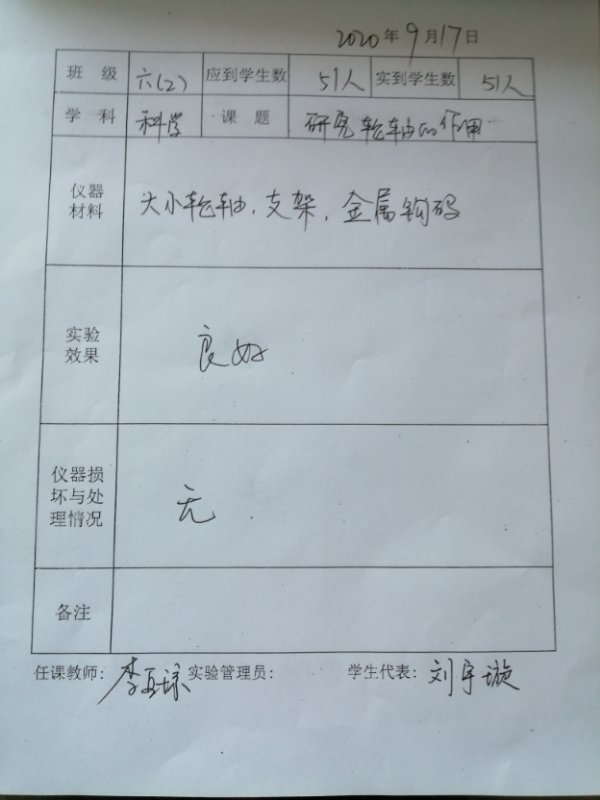 2020年9月17日
班 级 六(2) 应到学生数 51人 实到学生数 51人
学 科 科学 课 题 研究轮轴的作用
仪器
材料
大小轮轴,支架,金属钩码
实验
效果
良好
仪器损
坏与处
理情况
无
备注
任课教师: 李 实验管理员: 学生代表: 刘宇璇